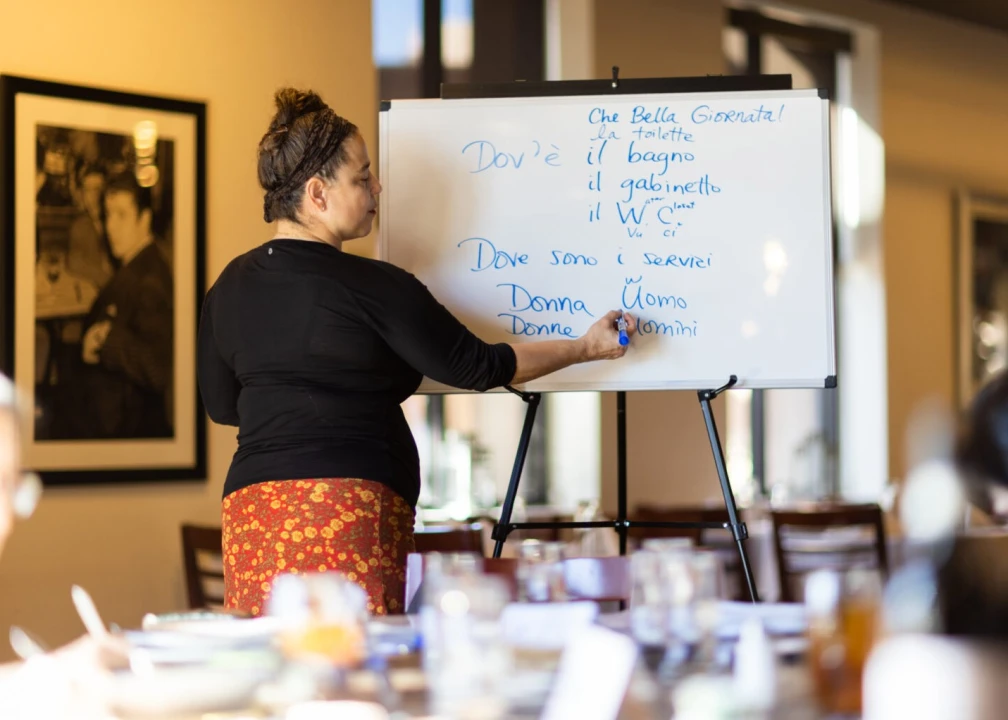 Che Bella Giornata!
la toilette
Dov'è il bagno
il gabinetto
il W. C.
ater loset
Vu ci
Dove sono i servizi
W
Donna Uomo
Donne omini